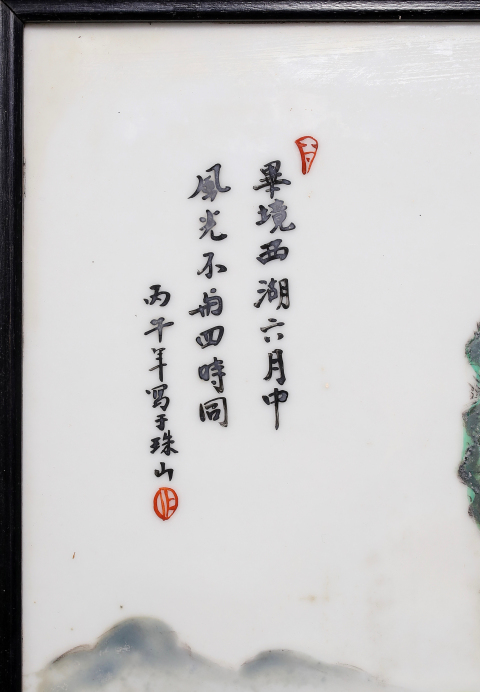 畢境西湖六月中
風光不与四時同
丙午年写于珠山